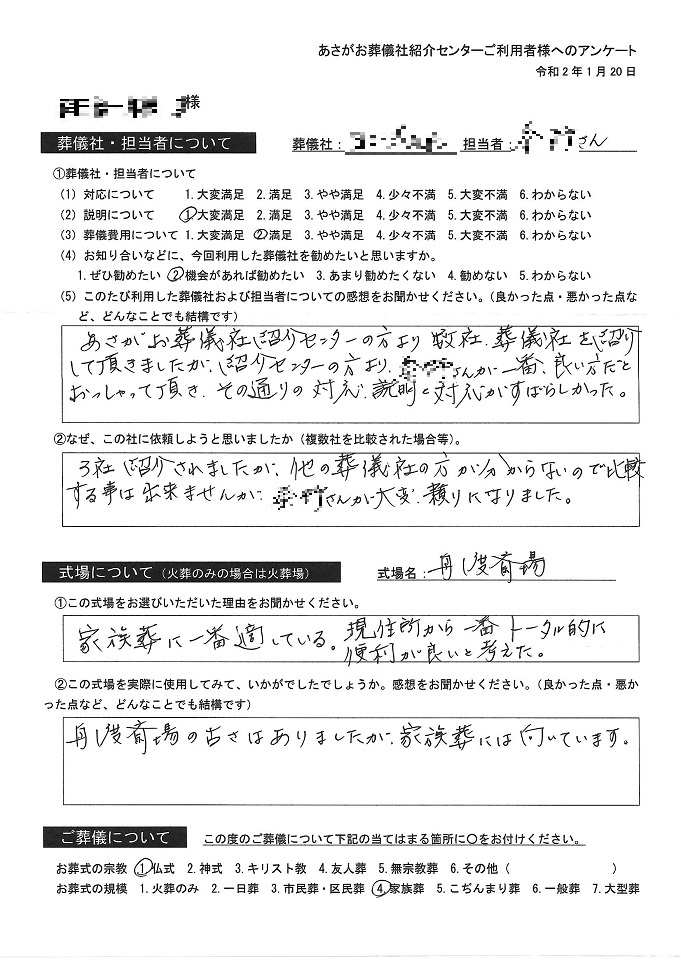 あさがお葬儀社紹介センターご利用者様へのアンケート
令和2年1月20日
様
葬儀社・担当者について 葬儀社: 担当者: さん
①葬儀社・担当者について
(1) 対応について 1.大変満足 2.満足 3.やや満足 4.少々不満 5.大変不満 6.わからない
(2) 説明について ①大変満足 2.満足 3.やや満足 4.少々不満 5.大変不満 6.わからない
(3) 葬儀費用について 1.大変満足 ②満足 3.やや満足 4.少々不満 5.大変不満 6.わからない
(4) お知り合いなどに、今回利用した葬儀社を勧めたいと思いますか。
1.ぜひ勧めたい ②機会があれば勧めたい 3.あまり勧めたくない 4.勧めない 5.わからない
(5) このたび利用した葬儀社および担当者についての感想をお聞かせください。(良かった点・悪かった点な
ど、どんなことでも結構です)
あさがお葬儀社紹介センターの方より数社、葬儀社を紹介
して頂きましたが、紹介センターの方より、さんが一番、良い方だと
おっしゃって頂き、その通りの対応、説明と対応がすばらしかった。
②なぜ、この社に依頼しようと思いましたか(複数社を比較された場合等)。
3社紹介されましたが、他の葬儀社の方が分からないので比較
する事は出来ませんが、さんが大変、頼りになりました。
式場について(火葬のみの場合は火葬場) 式場名: 舟渡斎場
①この式場をお選びいただいた理由をお聞かせください。
家族葬に一番適している。現住所から一番トータル的に
便利が良いと考えた。
②この式場を実際に使用してみて、いかがでしたでしょうか。感想をお聞かせください。(良かった点・悪か
った点など、どんなことでも結構です)
舟渡斎場の古さはありましたが、家族葬には向いています。
ご葬儀について この度のご葬儀について下記の当てはまる箇所に○をお付けください。
お葬式の宗教 ①仏式 2.神式 3.キリスト教 4.友人葬 5.無宗教葬 6.その他( )
お葬式の規模 1.火葬のみ 2.一日葬 3.市民葬・区民葬 ④家族葬 5.こぢんまり葬 6.一般葬 7.大型葬